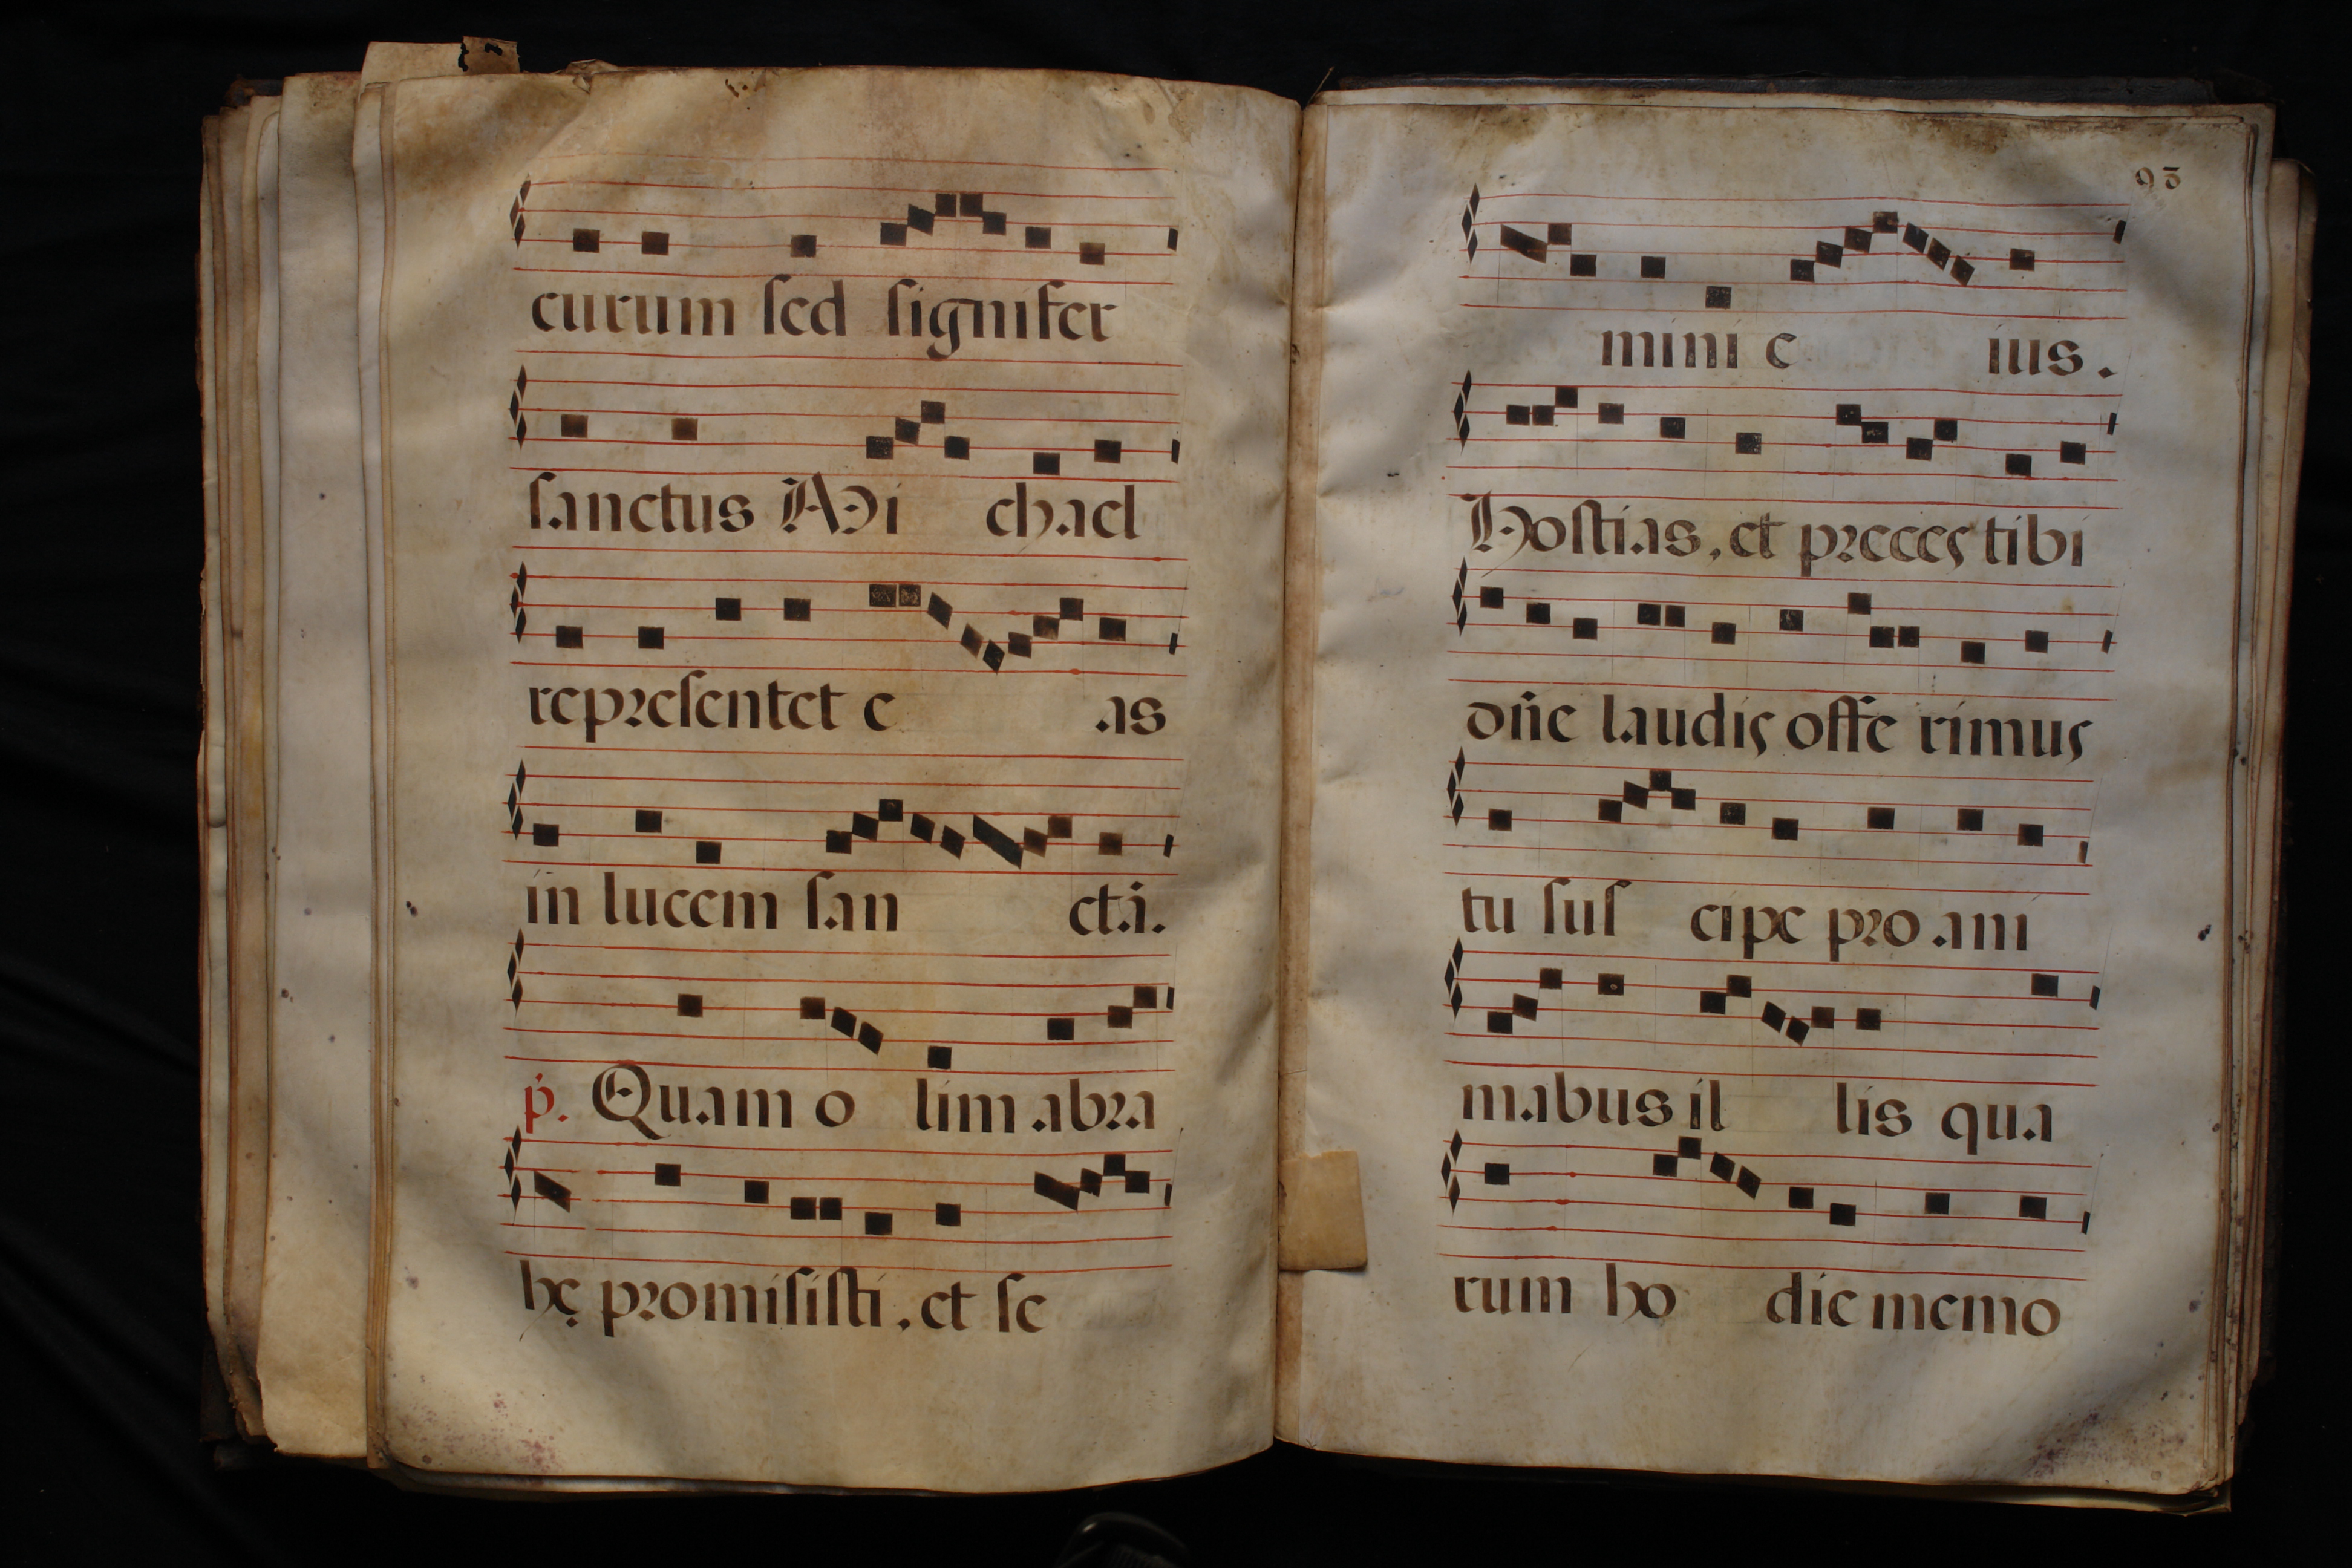 curum sed signifer
sanctus Mi chael
representet e as
in lucem san ctā.
p̄. Quam o lim abra
hę promisisti, et se
93
mini e ius.
Hostias, et preces tibi
dn̄e laudis offe rimus
tu sus cipe pro ani
mabus il lis qua
rum ho die memo